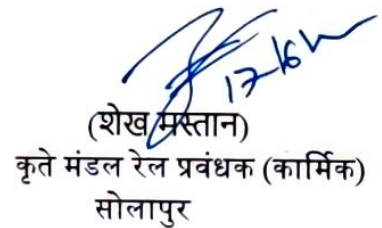 (शेख मस्तान)
कृते मंडल रेल प्रबंधक (कार्मिक)
सोलापुर